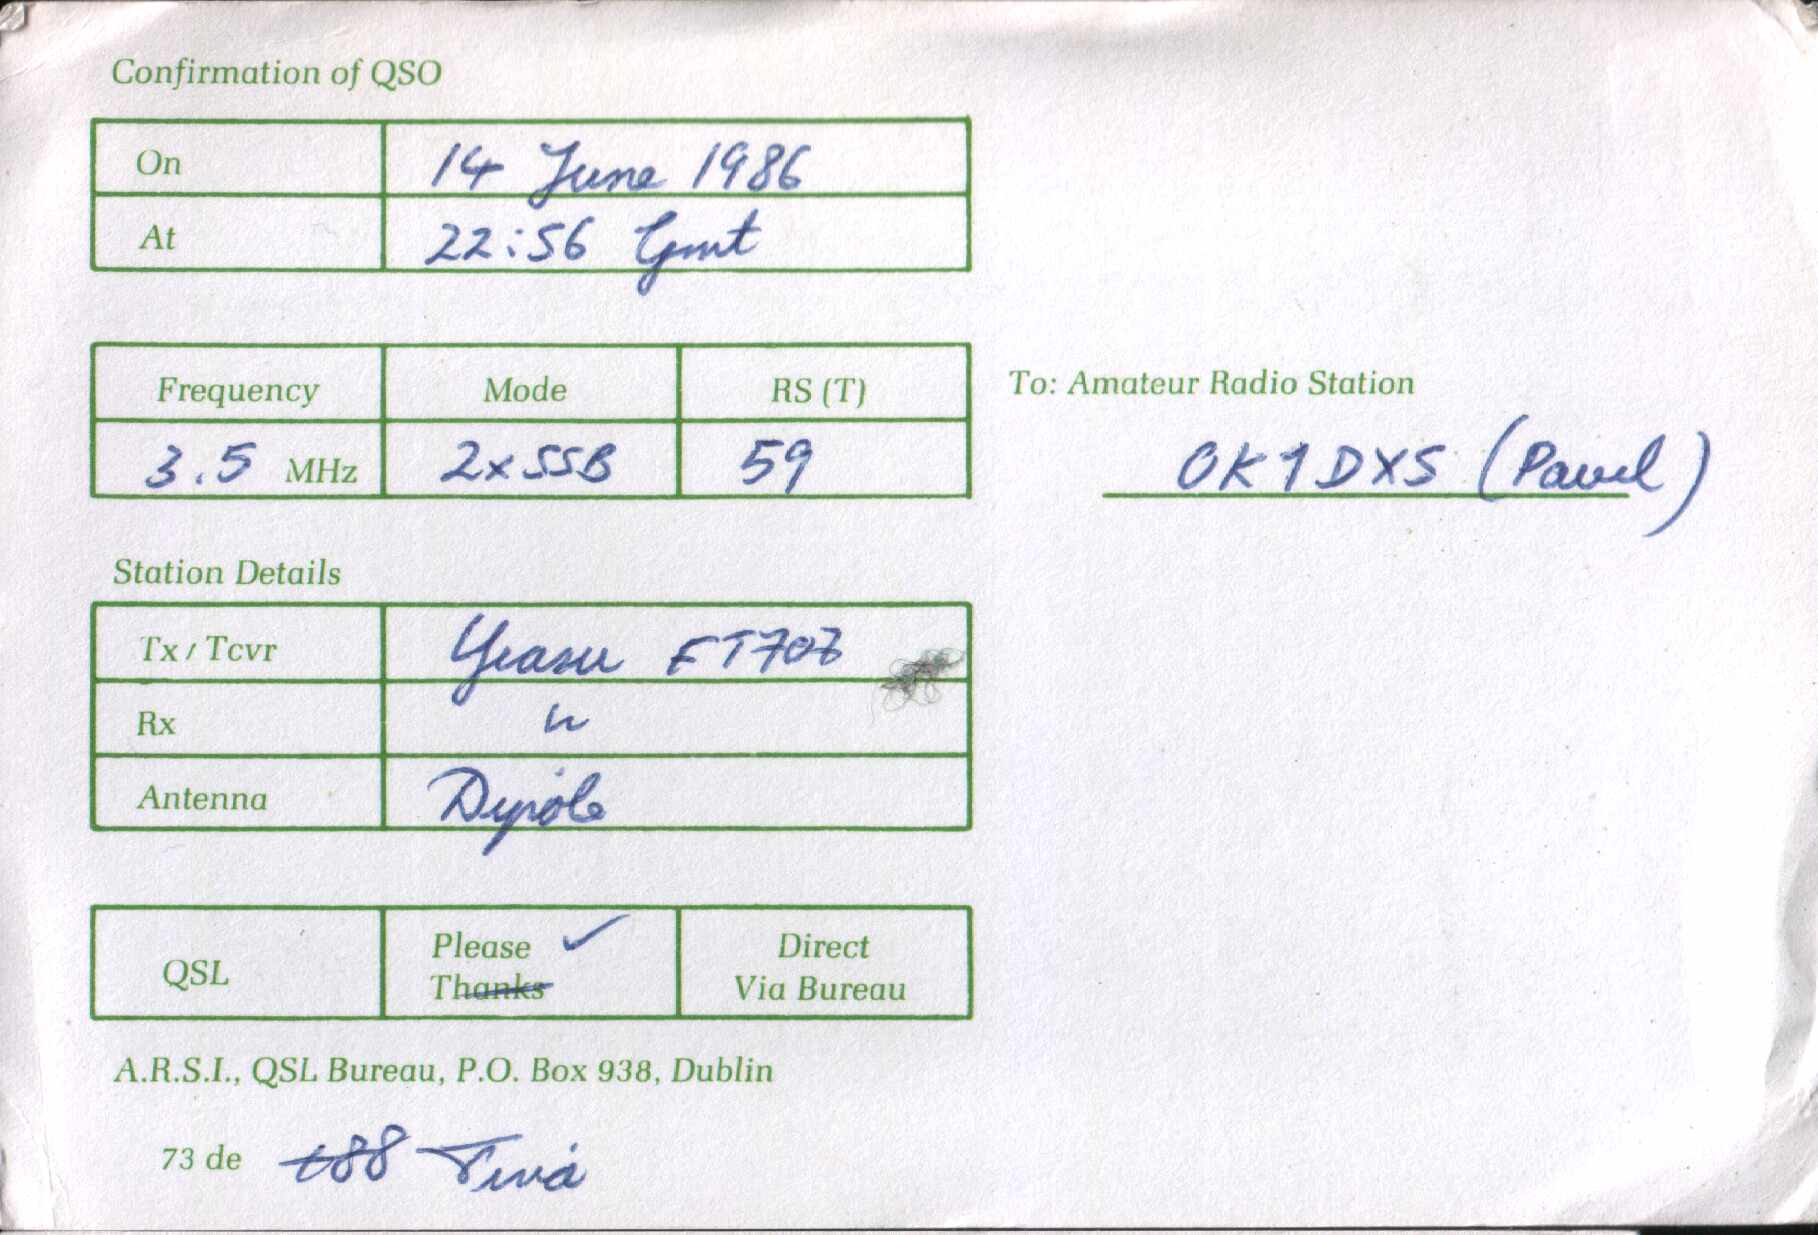 Confirmation of QSO
On 14 June 1986
At 22:56 Gmt
Frequency Mode RS (T)
3.5 MHz 2xSSB 59
To: Amateur Radio Station
OK1DXS (Pavel)
Station Details
Tx / Tcvr Yeasu FT707
Rx "
Antenna Dipole
QSL
Please ✓
Thanks
Direct
Via Bureau
A.R.S.I., QSL Bureau, P.O. Box 938, Dublin
73 de 88